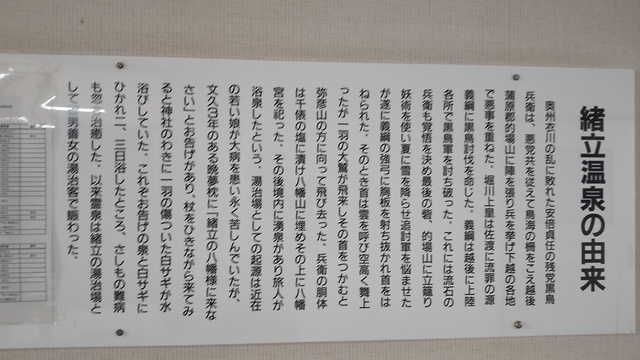 緒立温泉の由来
奥州衣川の乱に敗れた安倍貞任の残党黒鳥
兵衛は、悪党共を従えて鳥海の柵をこえ越後
蒲原郡的場山に陣を張り兵を挙げ下越の各地
で悪事を重ねた。堀川上皇は佐渡に流罪の源
義綱に黒鳥討伐を命じた。義綱は越後に上陸
各所で黒鳥軍を討ち破った。これには流石の
兵衛も覚悟を決め最後の砦、的場山に立籠り
妖術を使い夏に雪を降らせ追討軍を悩ませた
が遂に義綱の強弓に胸板を射ち抜かれ首をは
ねられた。そのとき首は雲を呼び空高く舞上
ったが一羽の大鷲が飛来しその首をつかむと
弥彦山の方に向って飛び去った。兵衛の胴体
は千俵の塩に漬け八幡山に埋めその上に八幡
宮を祀った。その後境内に湧泉があり旅人が
浴泉したという。湯治場としての起源は近在
の若い娘が大病を患い永く苦しんでいたが、
文久3年のある晩夢枕に「緒立の八幡様に来な
さい」とお告げがあり、杖をひきながら来てみ
ると神社のわきに一羽の傷ついた白サギが水
浴びしていた。これぞお告げの泉と白サギに
ひかれ二、三日浴したところ、さしもの難病
も忽ち治癒した。以来霊泉は緒立の湯治場と
して善男善女の湯治客で賑わった。